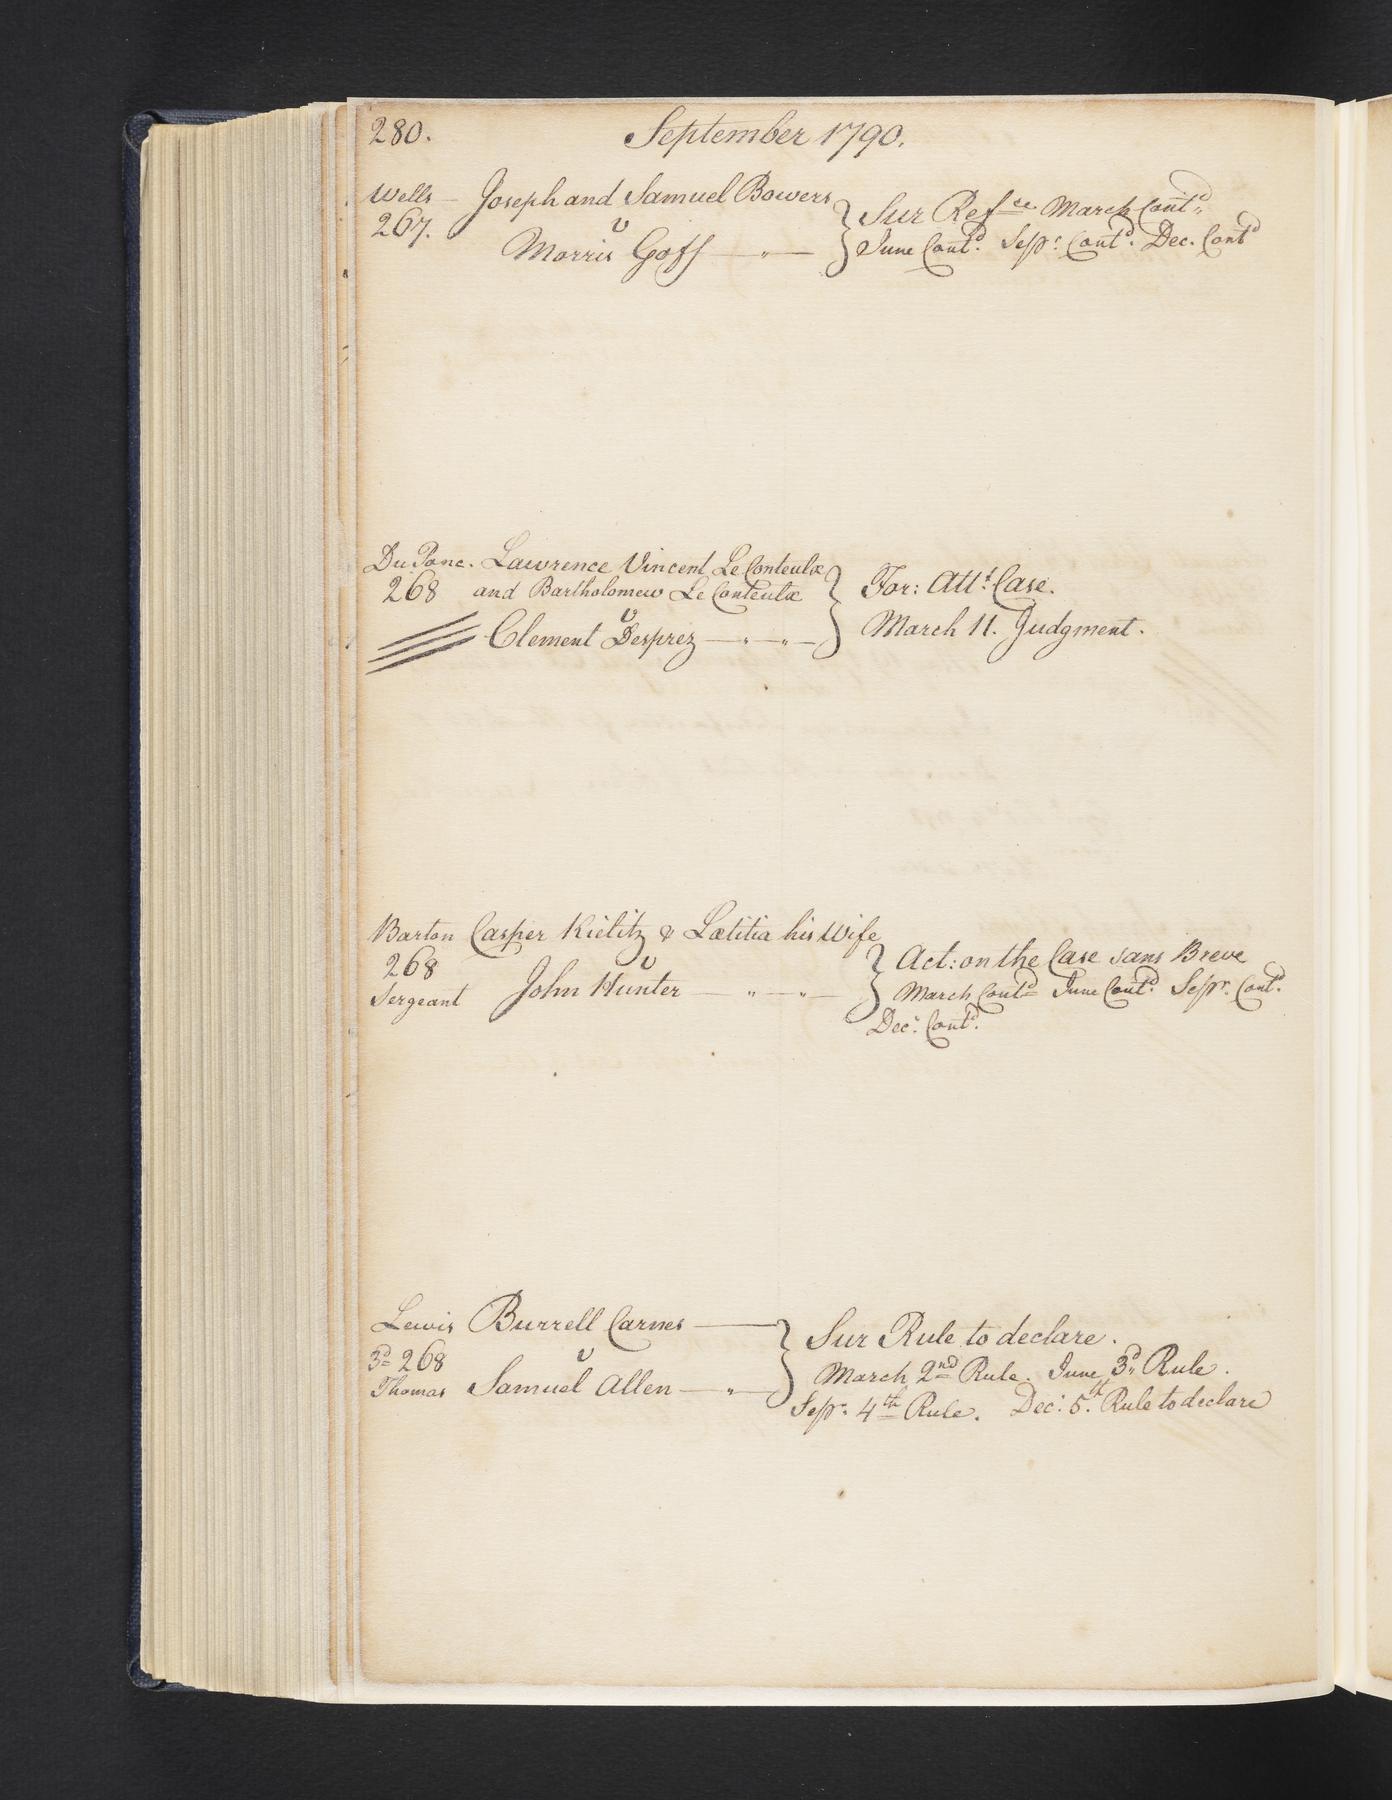 280. September 1790.
Wells – Joseph and Samuel Bowers
267. v
Morris Goff
Sur Refce. March Contd.
June Contd. Sepr. Contd. Dec. Contd
DuPonc. Lawrence Vincent Le Conteulx
268 and Bartholomew Le Conteulx
v
Clement Desprez
For: Attt. Case.
March 11. Judgment.
Barton Casper Kielitz & Lætitia his Wife
268 v
Sergeant John Hunter
Act: on the Case sans Breve
March Contd June Contd. Sepr. Contd.
Decr. Contd.
Lewis Burrell Carnes
3d 268 v
Thomas Samuel Allen
Sur Rule to declare.
March 2nd Rule. June 3d Rule.
Sepr. 4th Rule. Dec: 5th. Rule to declare